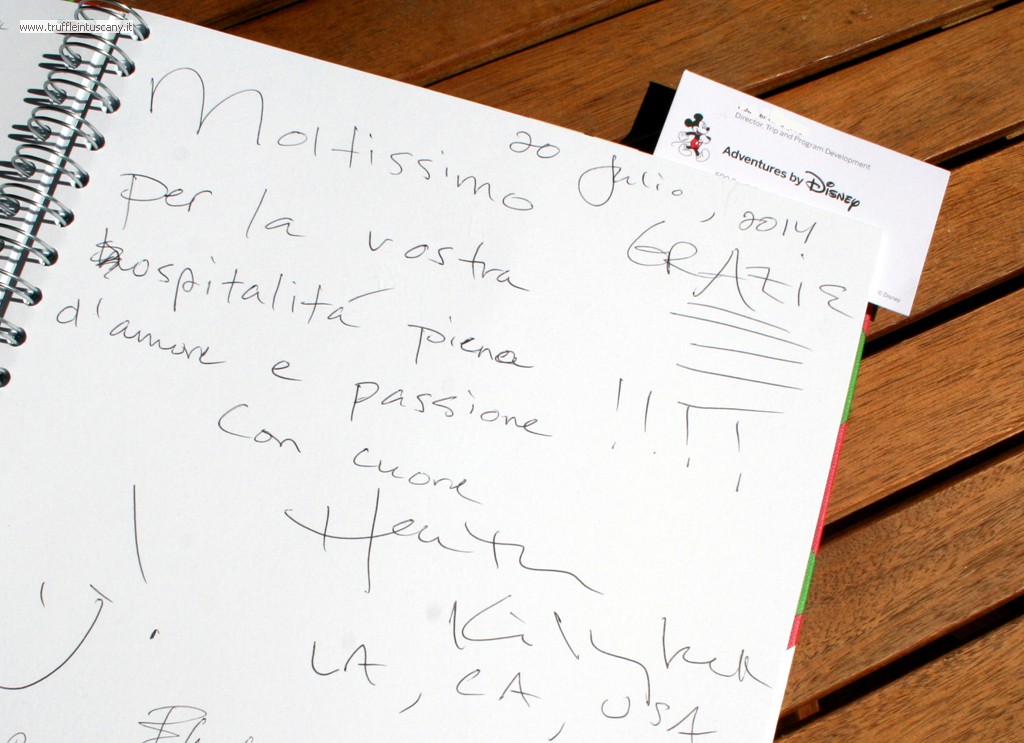 www.truffleintuscany.it
Director, Trip and Program Development
Adventures by Disney
© Disney
20 Julio, 2014
Moltissimo GRAZIE
per la vostra
hospitalitá piena
d'amore e passione !!!!
Con cuore
Heather
LA, CA, USA